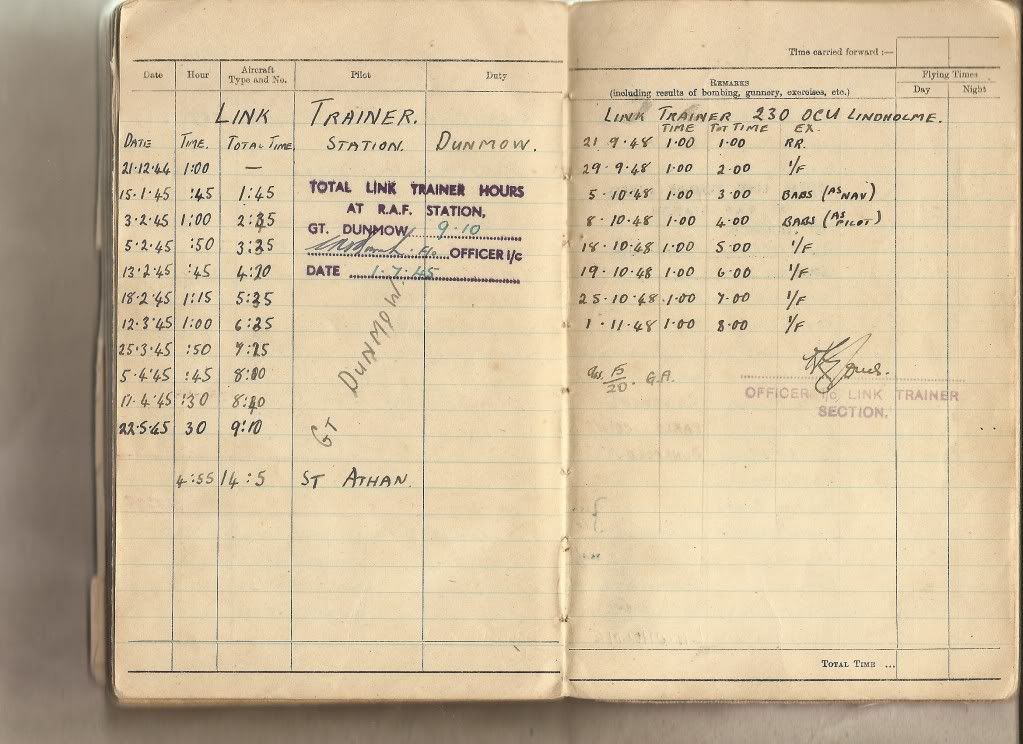 Date Hour Aircraft Type and No. Pilot Duty
LINK TRAINER.
DATE TIME. TOTAL TIME STATION. DUNMOW.
21.12.44 1:00 —
15.1.45 :45 1:45
3.2.45 1:00 2:35
5.2.45 :50 3:25
13.2.45 :45 4:20
18.2.45 1:15 5:35
12.3.45 1:00 6:25
25.3.45 :50 7:25
5.4.45 :45 8:10
17.4.45 :30 8:40
22.5.45 30 9:10
GT DUNMOW.
4:55 14:5 ST ATHAN.
TOTAL LINK TRAINER HOURS
AT R.A.F. STATION,
GT. DUNMOW 9.10
OFFICER I/C
DATE 1.7.45
Time carried forward :—
REMARKS
(including results of bombing, gunnery, exercises, etc.)
Flying Times
Day Night
LINK TRAINER 230 OCU LINDHOLME.
TIME TOT TIME EX.
21.9.48 1.00 1.00 RR.
29.9.48 1.00 2.00 I/F
5.10.48 1.00 3.00 BABS (AS NAV)
8.10.48 1.00 4.00 BABS (AS PILOT)
18.10.48 1.00 5.00 I/F
19.10.48 1.00 6.00 I/F
25.10.48 1.00 7.00 I/F
1.11.48 1.00 8.00 I/F
15/20. G.A.
OFFICER I/C LINK TRAINER
SECTION.
TOTAL TIME ...